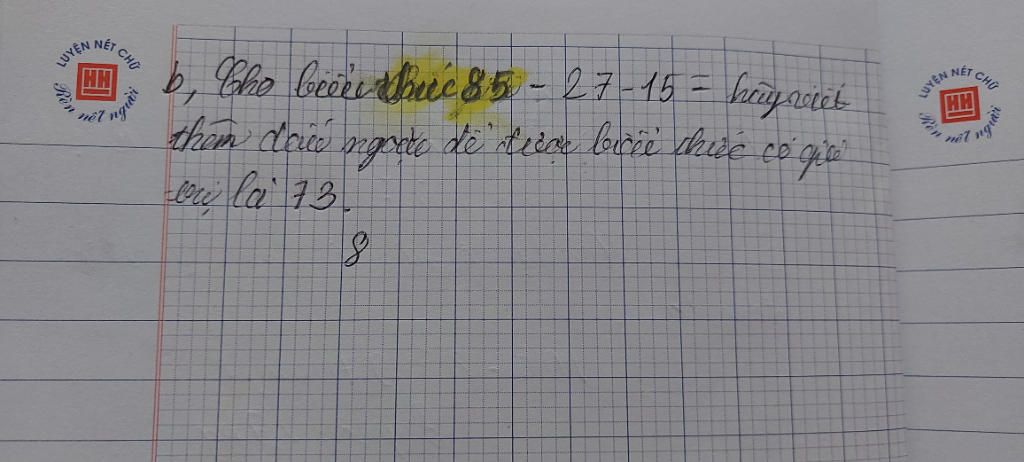 LUYỆN NÉT CHỮ
HH
Rèn nết người
b, Cho biểu thức 85 - 27 - 15 = hãy viết
thêm dấu ngoặc để được biểu thức có giá
trị là 73.
8
LUYỆN NÉT CHỮ
HH
Rèn nết người